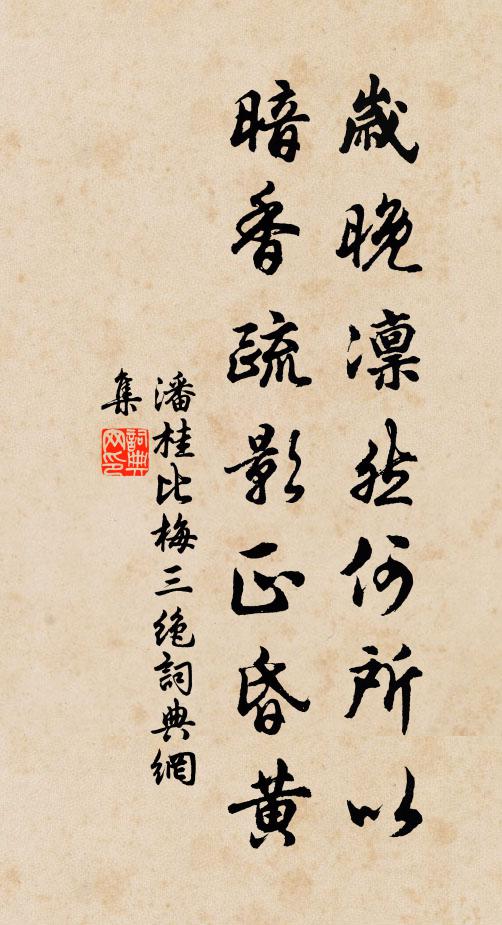 歲晚凜然何所以
暗香疏影正昏黃
潘桂比梅三绝詞典網
集
詞典
网印